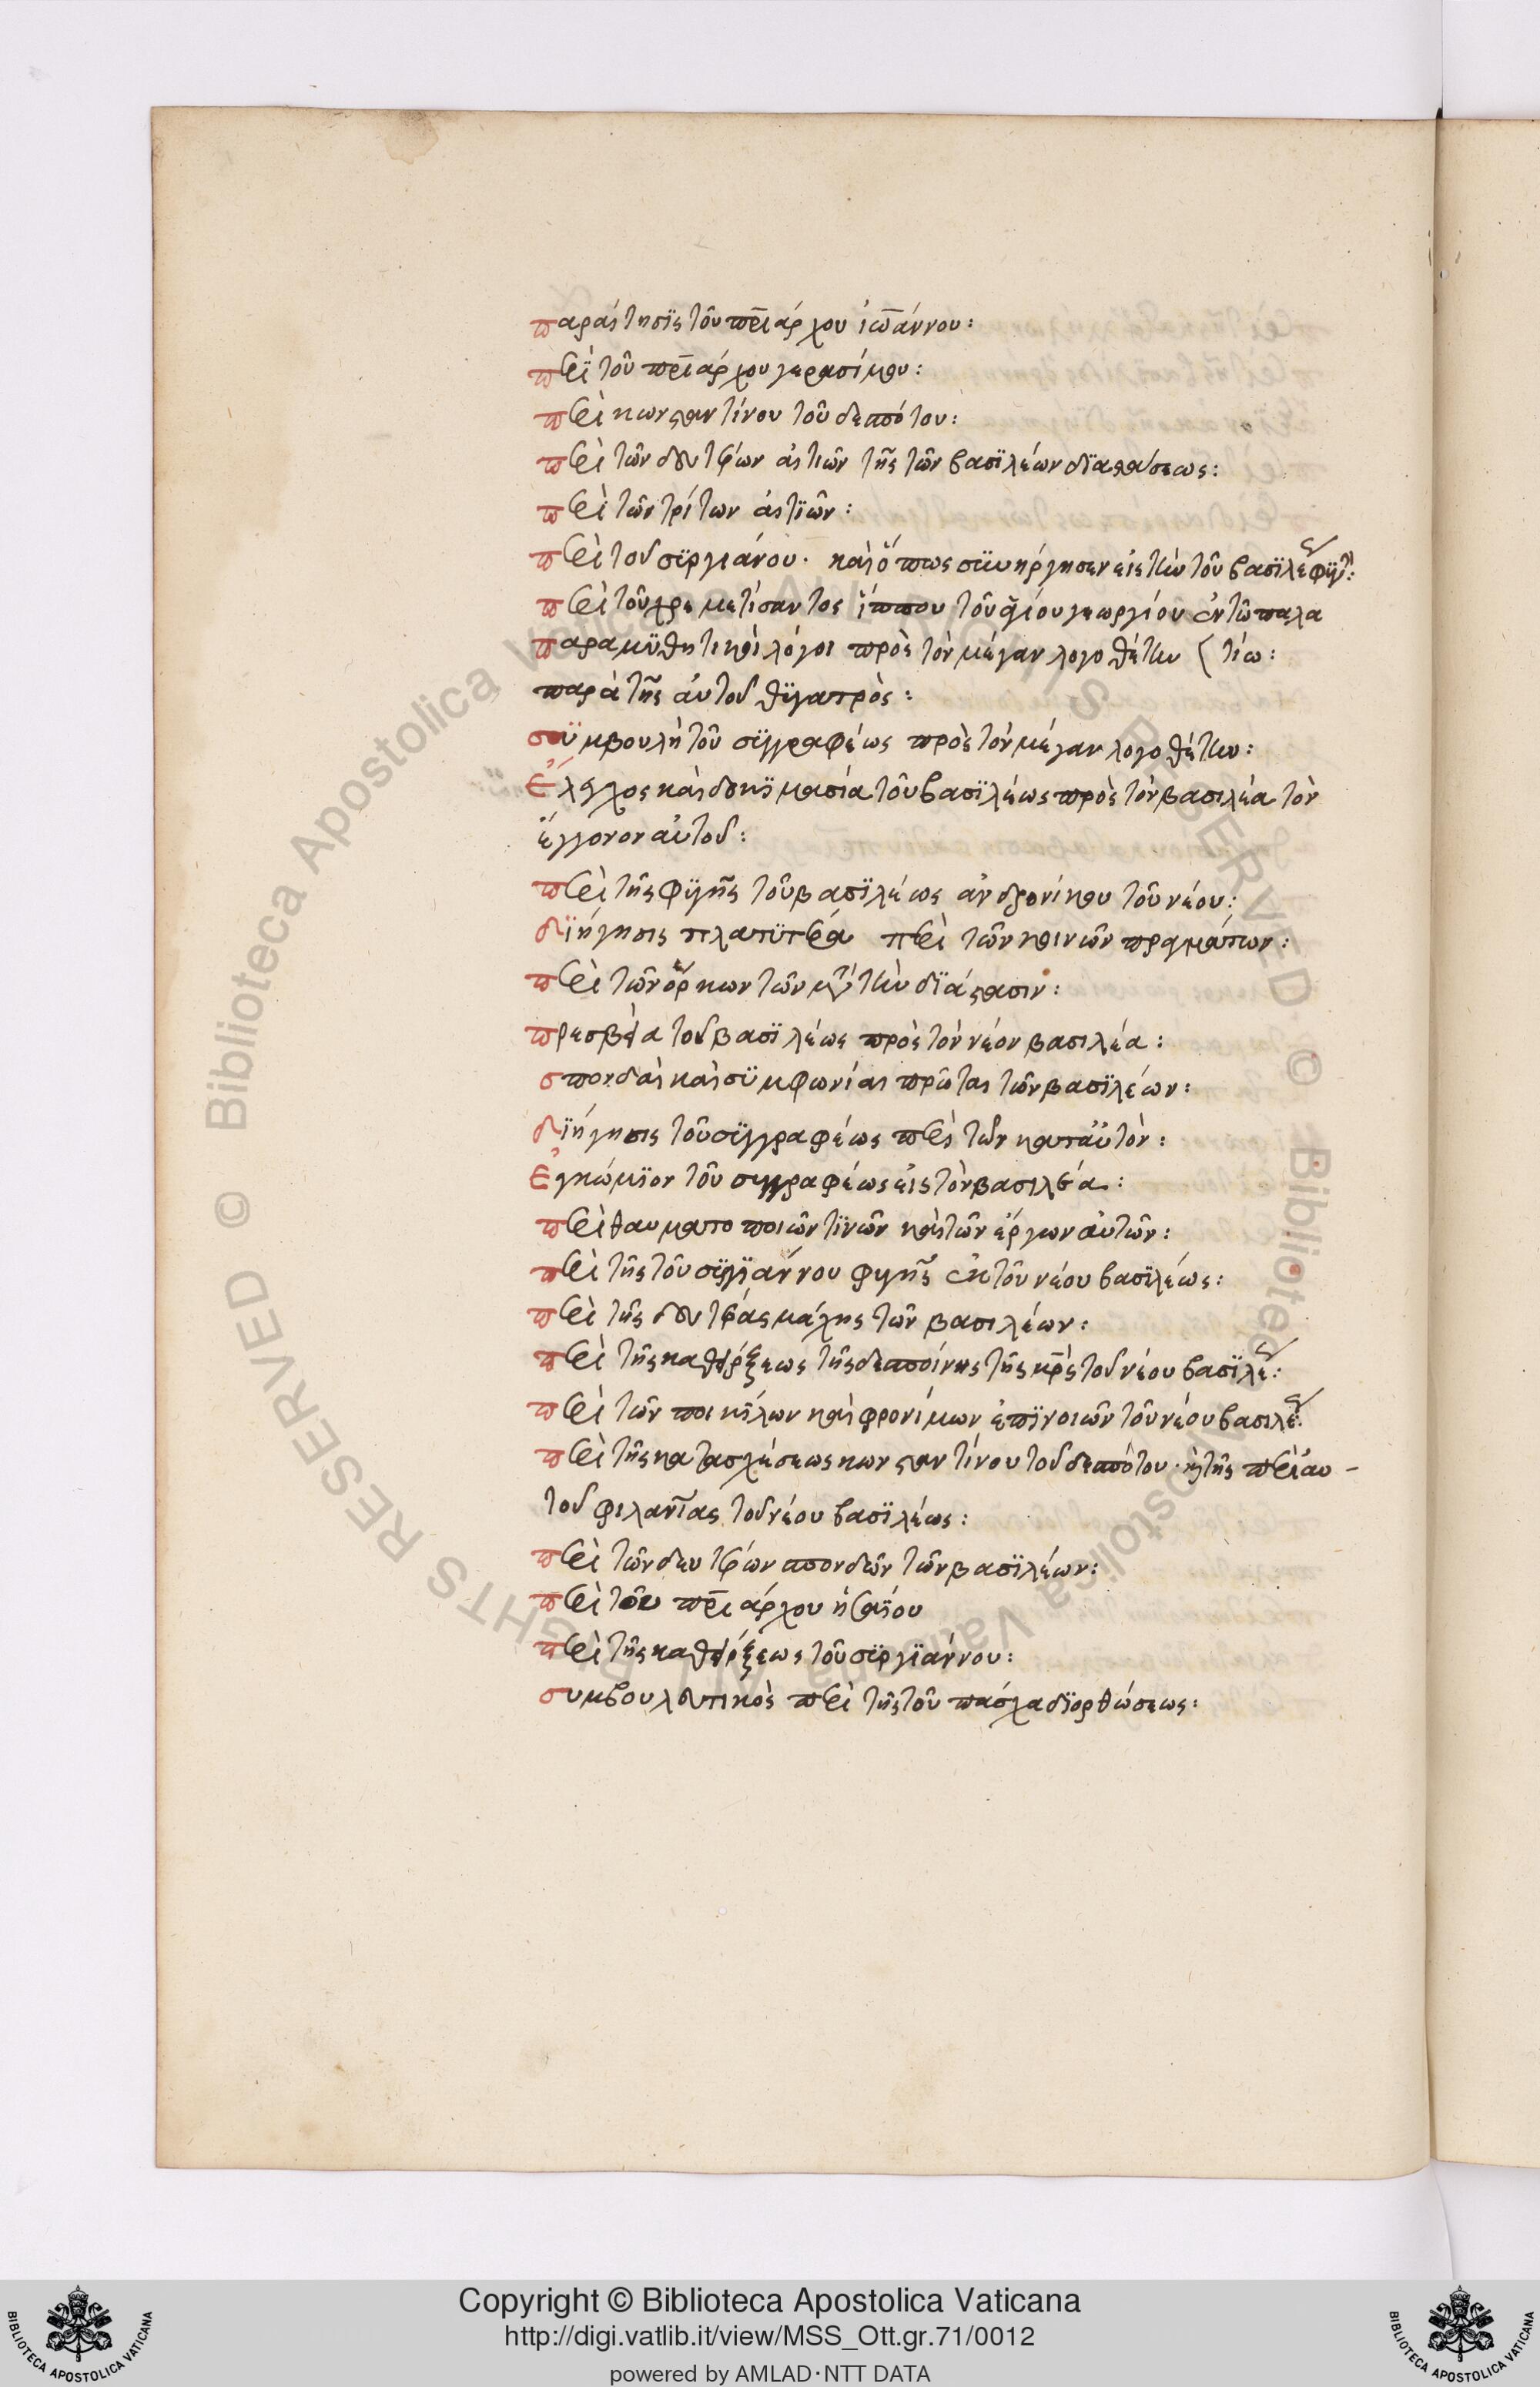 παραίτησϊς τοῦ πρ̅ιάρχου ἰω̅άννου:
περὶ τοῦ πρ̅ιάρχου γερασίμου:
περὶ κωνσταντίνου τοῦ δεσπότου:
περὶ τῶν δευτέρων αἰτιῶν τῆς τῶν βασϊλέων δϊαστάσεως:
περὶ τῶν τρίτων αἰτϊῶν:
περὶ τοῦ σϋργιάνου. καὶ ὅπως σϋνήργησεν εἰς τὴν τοῦ βασϊλέως φϋγὴν:
περὶ τοῦ χρεμετίσαντος ἵππου τοῦ ἁγίου γεωργίου ἐν τῶ παλα
παραμϋθητικοὶ λόγοι πρὸς τὸν μέγαν λογοθέτην { τίω:
παρὰ τῆς αὐτοῦ θϋγατρὸς:
σϋμβουλὴ τοῦ σϋγγραφέως πρὸς τὸν μέγαν λογοθέτην:
Ἔλεγχος καὶ δοκϊμασία τοῦ βασϊλέως πρὸς τὸν βασιλέα τὸν
ἔγγονον αὐτοῦ:
περὶ τῆς φϋγῆς τοῦ βασϊλέως ἀνδρονίκου τοῦ νέου:
δϊήγησις πλατϋτέρα περὶ τῶν κοινῶν πραγμάτων:
περὶ τῶν ὅρκων τῶν μετὰ τὴν δϊάστασιν:
πρεσβεία τοῦ βασϊλέως πρὸς τὸν νέον βασιλέα:
σπονδαὶ καὶ σϋμφωνίαι πρῶται τῶν βασϊλέων:
δϊήγησις τοῦ σϋγγραφέως περὶ τῶν κατ αὐτὸν:
Ἐγκώμϊον τοῦ συγγραφέως εἰς τὸν βασιλέα:
περὶ θαυματοποιῶν τϊνῶν καὶ τῶν ἔργων αὐτῶν:
περὶ τῆς τοῦ σϋργϊάννου φυγῆς ἐκ τοῦ νέου βασϊλέως:
περὶ τῆς δευτέρας μάχης τῶν βασιλέων:
περὶ τῆς καθείρξεως τῆς δεσποίνης τῆς μρ̅ὸς τοῦ νέου βασϊλέως:
περὶ τῶν ποικίλων καὶ φρονίμων ἐπϊνοιῶν τοῦ νέου βασιλέως:
περὶ τῆς κατασχέσεως κωνσταντίνου τοῦ δεσπότου. καὶ τῆς περὶ αυ-
τοῦ φιλαν̅ίας τοῦ νέου βασϊλέως:
περὶ τῶν δευτέρων σπονδῶν τῶν βασϊλέων:
περὶ τοῦ πρ̅ιάρχου ἡσαΐου
περὶ τῆς καθείρξεως τοῦ σϋργϊάννου:
συμβουλευτικὸς περὶ τῆς τοῦ πάσχα δϊορθώσεως:
Copyright © Biblioteca Apostolica Vaticana
http://digi.vatlib.it/view/MSS_Ott.gr.71/0012
powered by AMLAD·NTT DATA